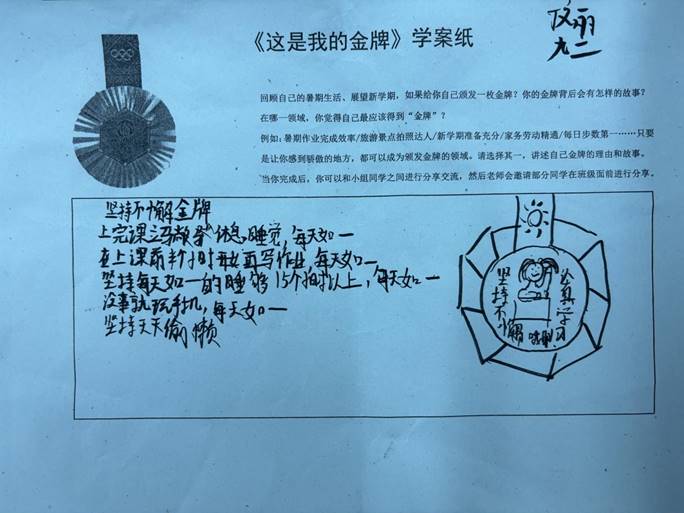 《这是我的金牌》学案纸
九二
回顾自己的暑期生活、展望新学期，如果给你自己颁发一枚金牌？你的金牌背后会有怎样的故事？
在哪一领域，你觉得自己最应该得到“金牌”？
例如：暑期作业完成效率/旅游景点拍照达人/新学期准备充分/家务劳动精通/每日步数第一……只要
是让你感到骄傲的地方，都可以成为颁发金牌的领域。请选择其一，讲述自己金牌的理由和故事。
当你完成后，你可以和小组同学之间进行分享交流，然后老师会邀请部分同学在班级面前进行分享。
坚持不懈金牌
上完课立马 休息，睡觉，每天如一
在上课前半个小时 再写作业，每天如一
坚持每天如一的睡 15个 以上，每天如一
没事就玩手机，每天如一
坚持天天偷懒
坚持不懈
认真学习